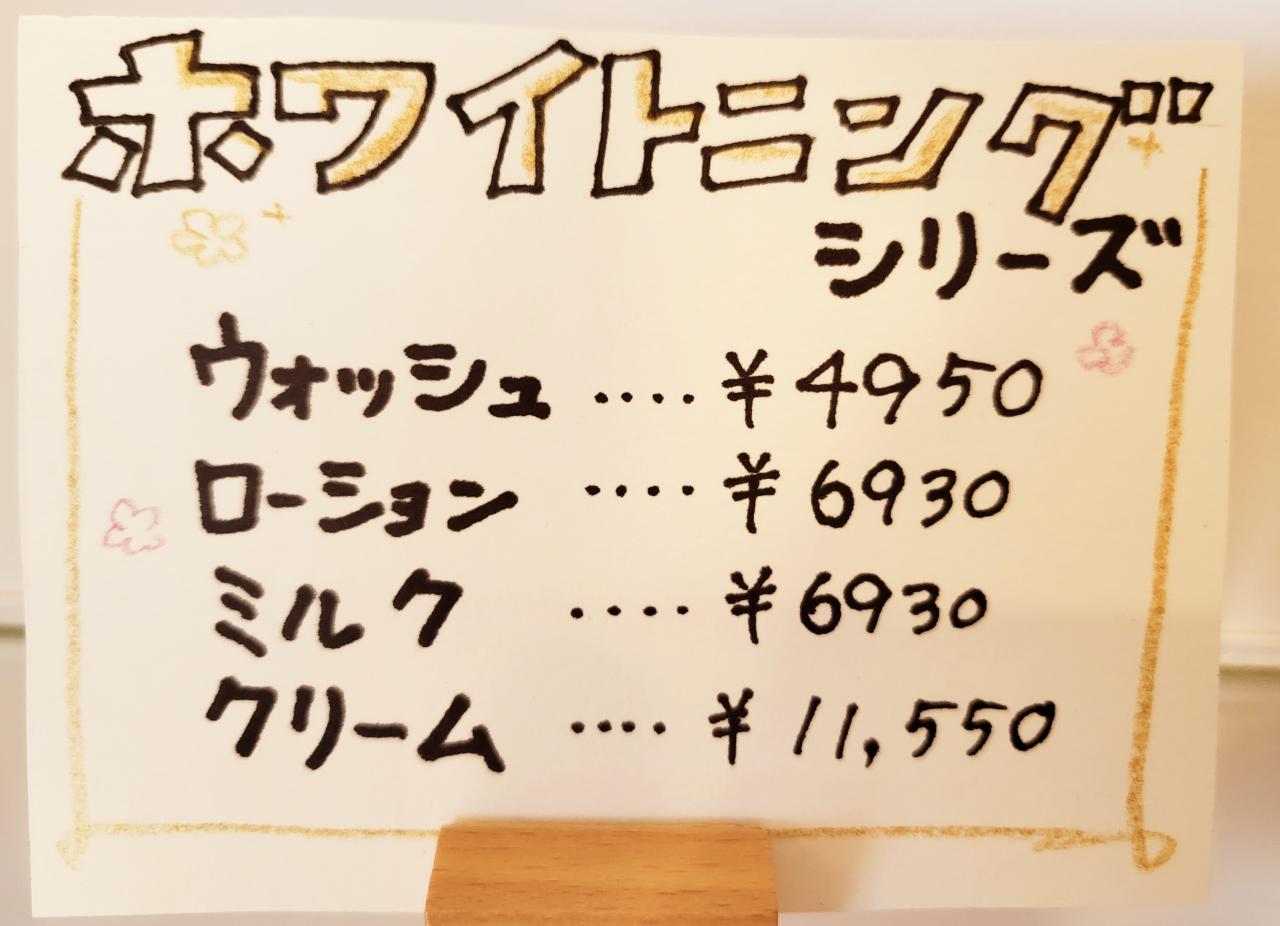 ホワイトニング
シリーズ
ウォッシュ ････ ¥4950
ローション ････ ¥6930
ミルク ････ ¥6930
クリーム ････ ¥11,550